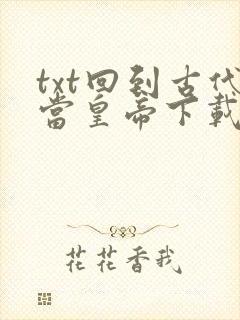 txt回到古代
當皇帝下載
花花香我